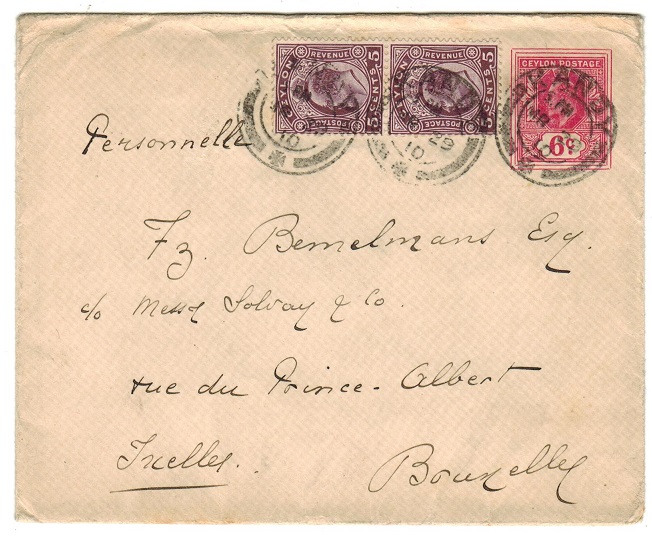 CEYLON POSTAGE
6c
CEYLON REVENUE POSTAGE 5 CENTS 5
CEYLON REVENUE POSTAGE 5 CENTS 5
Personnelle
Fz. Bemelmans Esq.
c/o Messrs Solvay & Co.
rue du Prince-Albert
Ixelles.
Bruxelles